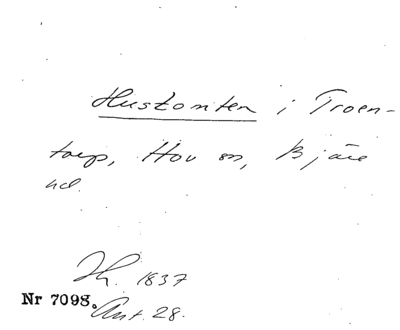 Hustomten i Troen-
torp, Hov sn, Bjäre
hd.
Th. 1837
Nr 7098. Ant. 28.